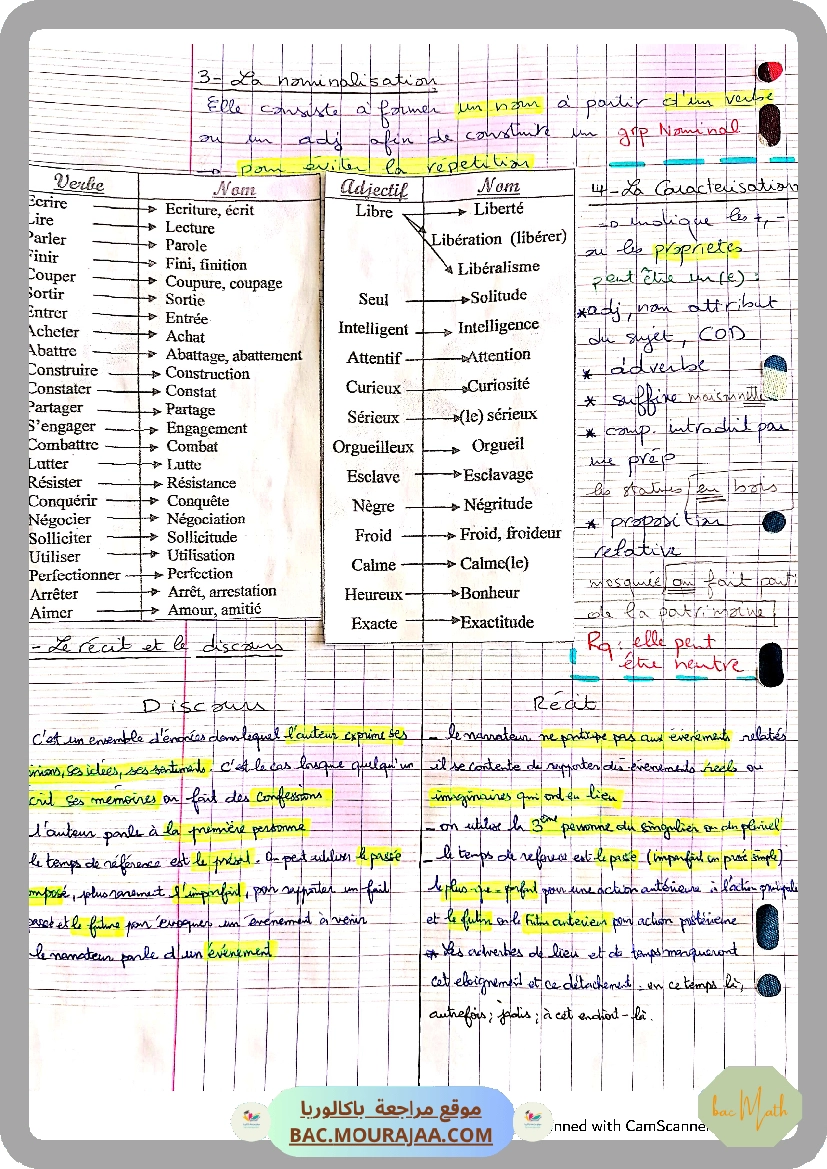 3- La nominalisation
Elle consiste à former un nom à partir d'un verbe
ou un adj afin de construire un grp Nominal
→ pour éviter la répetition
Verbe Nom
Ecrire Ecriture, écrit
Lire Lecture
Parler Parole
Finir Fini, finition
Couper Coupure, coupage
Sortir Sortie
Entrer Entrée
Acheter Achat
Abattre Abattage, abattement
Construire Construction
Constater Constat
Partager Partage
S'engager Engagement
Combattre Combat
Lutter Lutte
Résister Résistance
Conquérir Conquête
Négocier Négociation
Solliciter Sollicitude
Utiliser Utilisation
Perfectionner Perfection
Arrêter Arrêt, arrestation
Aimer Amour, amitié
Adjectif Nom
Libre Liberté
Libération (libérer)
Libéralisme
Seul Solitude
Intelligent Intelligence
Attentif Attention
Curieux Curiosité
Sérieux (le) sérieux
Orgueilleux Orgueil
Esclave Esclavage
Nègre Négritude
Froid Froid, froideur
Calme Calme(le)
Heureux Bonheur
Exacte Exactitude
4- La Caracterisation
→ indique les +, -
ou les proprietés
peut être un(e) :
*adj, nom attribut
du sujet, COD
* adverbe
* suffixe maisonnette
* comp. introduit par
une prép
les statues en bois
* proposition
relative
mosquée fait parti
de la patrimoine
Rq: elle peut
être neutre
- Le récit et le discours
Discours
C'est un ensemble d'énoncés dans lequel l'auteur exprime ses
opinions, ses idées, ses sentiments. C'est le cas lorsque quelqu'un
écrit ses mémoires ou fait des confessions
l'auteur parle à la première personne
le temps de référence est le présent. On peut utiliser le passé
composé, plus rarement l'imparfait, pour rapporter un fait
passé et le future pour évoquer un événement à venir
le narrateur parle d'un événement
Récit
- le narrateur ne participe pas aux événements relatés
il se contente de rapporter des événements réels ou
imaginaires qui ont eu lieu
- on utilise la 3ème personne du singulier ou du pluriel
- le temps de reference est le passé (imparfait ou passé simple)
le plus-que-parfait pour une action antérieure à l'action principale
et le futur ou le futur anterieur pour action postérieure
* Les adverbes de lieu et de temps marqueront
cet eloignement et ce détachement : en ce temps là,
autrefois ; jadis ; à cet endroit-là.
موقع مراجعة باكالوريا
BAC.MOURAJAA.COM
nned with CamScanner
bac Math